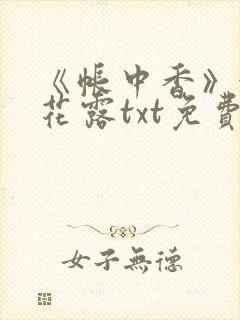 《帐中香》
花露txt免費
女子無德